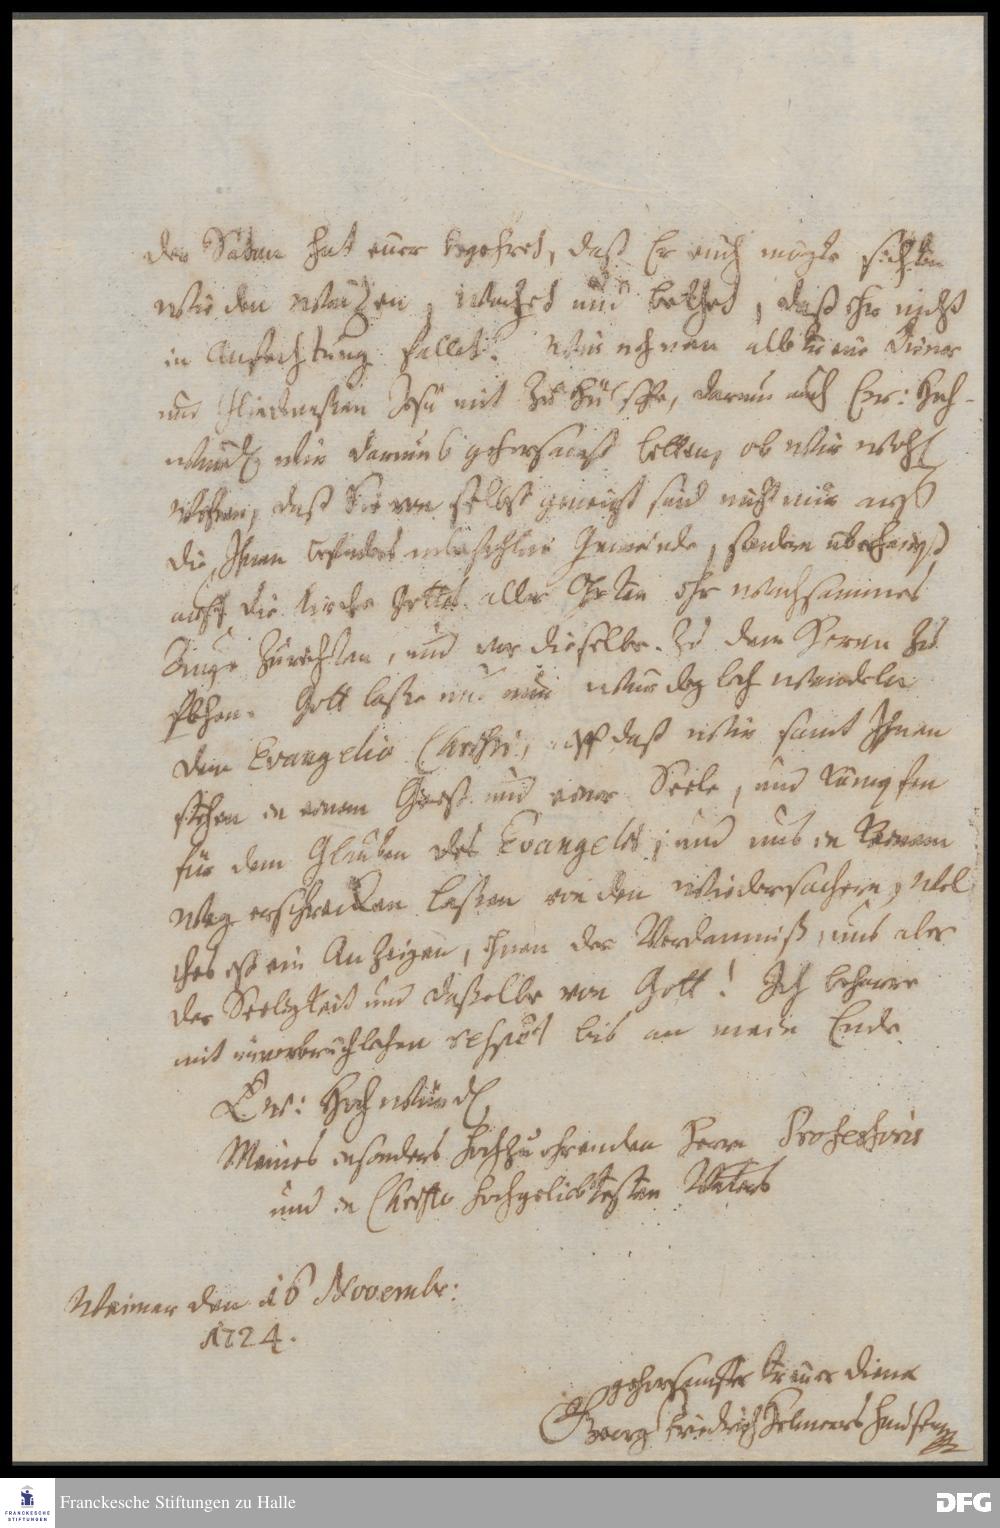 der Satan hat euer begehret, daß Er euch mögte sichten
wie den Waitzen, Wachet und bethet, daß ihr nicht
in Anfechtung fallet. Wir nehmen alle treue Diener
und Gliedmaßen Jesu mit zu Hülffe, darum auch Ew: Hoch-
würd. wir darumb gehorsamst bitten, ob wir wohl
wißen, daß Sie von selbst geneigt sind nicht nur auff
die Ihnen besonders anbefohlene Gemeinde, sondern überhaupt
auff die Kirche Gottes aller Orten ihr wachsames
Auge zurichten, und vor dieselbe zu dem Herrn zu
flehen. Gott laße uns nur würdiglich wandeln
dem Evangelio Christi, auff daß wir samt Ihnen
stehen in einem Geist und einer Seele, und kämpfen
für dem Glauben des Evangelii, und uns in keinem
weg erschrecken laßen von den Wiedersachern, wel
ches ist ein Anzeigen, ihnen der Verdamniß, uns aber
der Seeligkeit und daßelbe von Gott! Ich beharre
mit unverbrüchlichen respect bis an mein Ende
Ew: Hochwürd.
Meines insonders hochzuehrenden Herrn Professoris
und in Christo hochgeliebtesten Vaters
Weimar den 16 Novembr:
1724.
gehorsamster treuer Diener
Georg Friedrich Helmershausen
Franckesche Stiftungen zu Halle
FRANCKESCHE
STIFTUNGEN
DFG